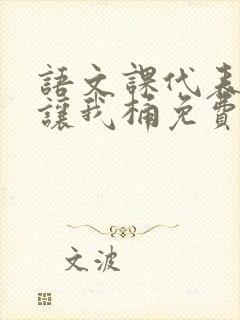 語文課代表
讓我桶免費
文波